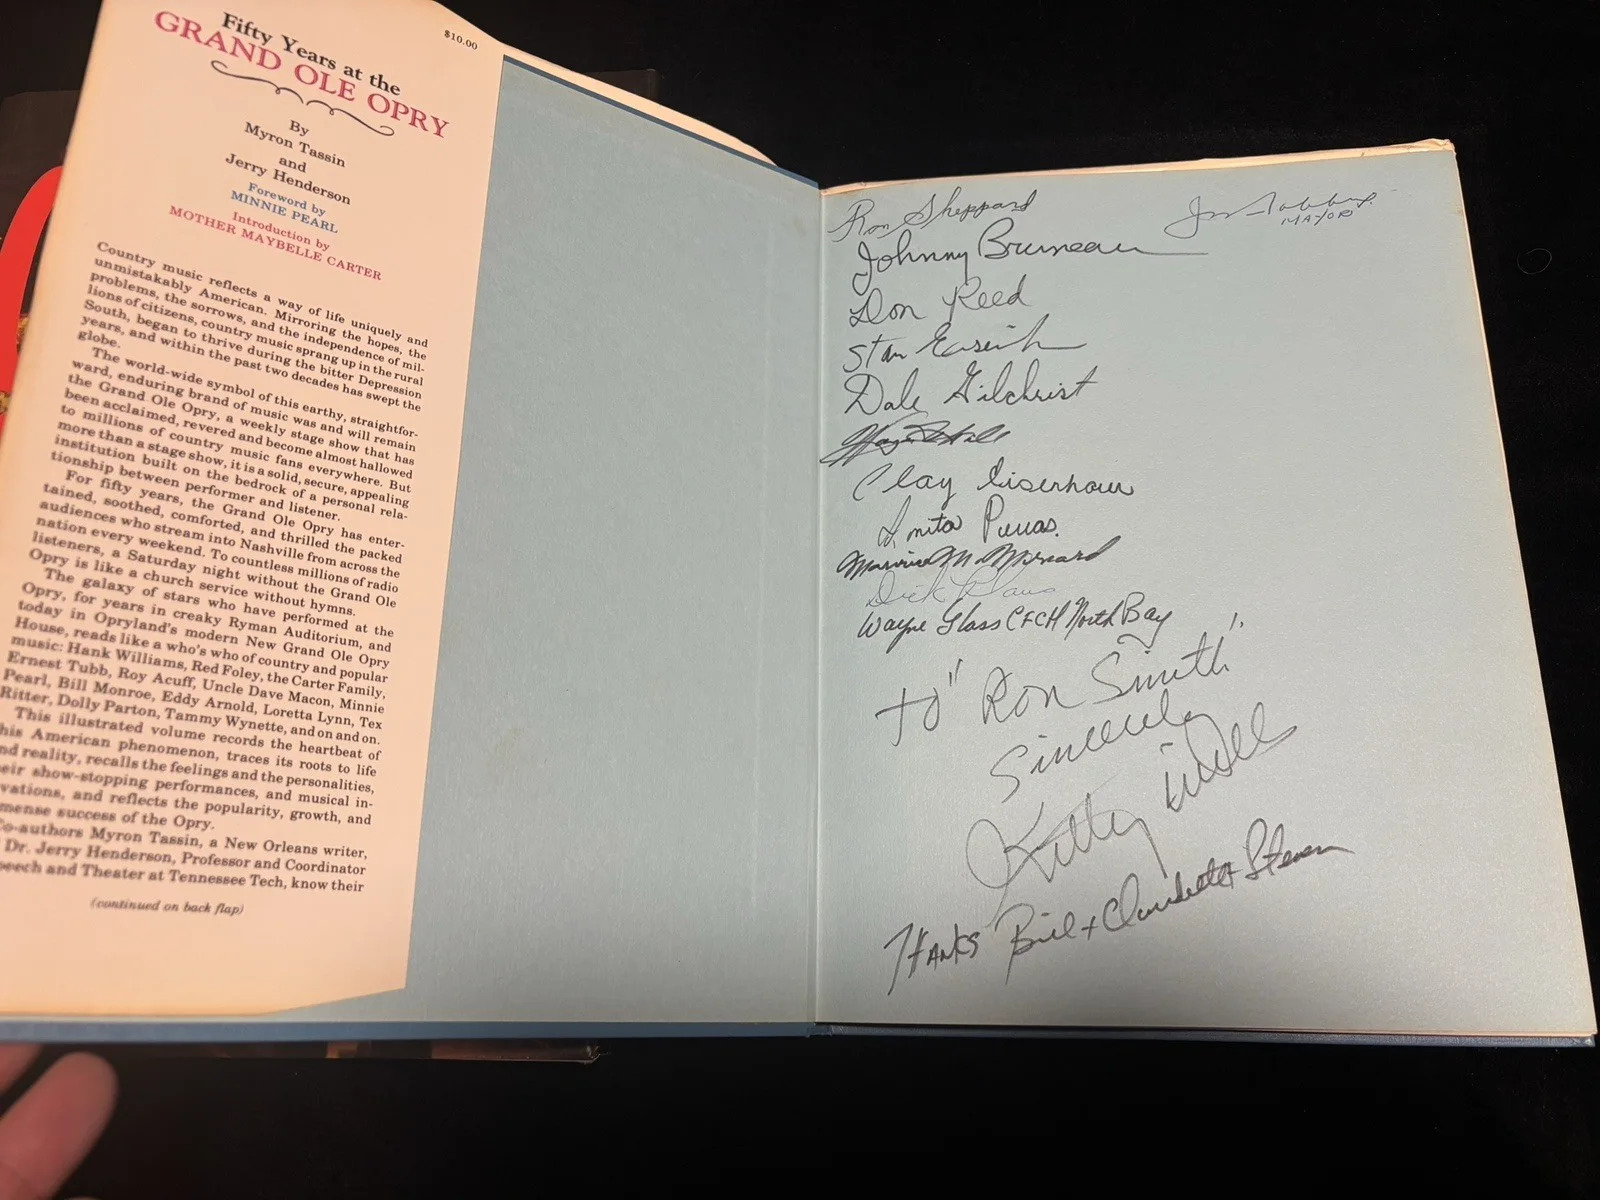 $10.00
Fifty Years at the
GRAND OLE OPRY
By
Myron Tassin
and
Jerry Henderson
Foreword by
MINNIE PEARL
Introduction by
MOTHER MAYBELLE CARTER
Country music reflects a way of life uniquely and
unmistakably American. Mirroring the hopes, the
problems, the sorrows, and the independence of mil-
lions of citizens, country music sprang up in the rural
South, began to thrive during the bitter Depression
years, and within the past two decades has swept the
globe.
The world-wide symbol of this earthy, straightfor-
ward, enduring brand of music was and will remain
the Grand Ole Opry, a weekly stage show that has
been acclaimed, revered and become almost hallowed
to millions of country music fans everywhere. But
more than a stage show, it is a solid, secure, appealing
institution built on the bedrock of a personal rela-
tionship between performer and listener.
For fifty years, the Grand Ole Opry has enter-
tained, soothed, comforted, and thrilled the packed
audiences who stream into Nashville from across the
nation every weekend. To countless millions of radio
listeners, a Saturday night without the Grand Ole
Opry is like a church service without hymns.
The galaxy of stars who have performed at the
Opry, for years in creaky Ryman Auditorium, and
today in Opryland's modern New Grand Ole Opry
House, reads like a who's who of country and popular
music: Hank Williams, Red Foley, the Carter Family,
Ernest Tubb, Roy Acuff, Uncle Dave Macon, Minnie
Pearl, Bill Monroe, Eddy Arnold, Loretta Lynn, Tex
Ritter, Dolly Parton, Tammy Wynette, and on and on.
This illustrated volume records the heartbeat of
his American phenomenon, traces its roots to life
nd reality, recalls the feelings and the personalities,
eir show-stopping performances, and musical in-
vations, and reflects the popularity, growth, and
mense success of the Opry.
Co-authors Myron Tassin, a New Orleans writer,
Dr. Jerry Henderson, Professor and Coordinator
peech and Theater at Tennessee Tech, know their
(continued on back flap)
Ron Sheppard
MAYOR
Johnny Bruneau
Don Reed
Stan
Dale Gilchrist
Clay Eisenhour
Maurice
Dick
Wayne Glass CFCH North Bay
to "Ron Smith"
Sincerely
Kitty Wells
THANKS Bill + Claudette Steven